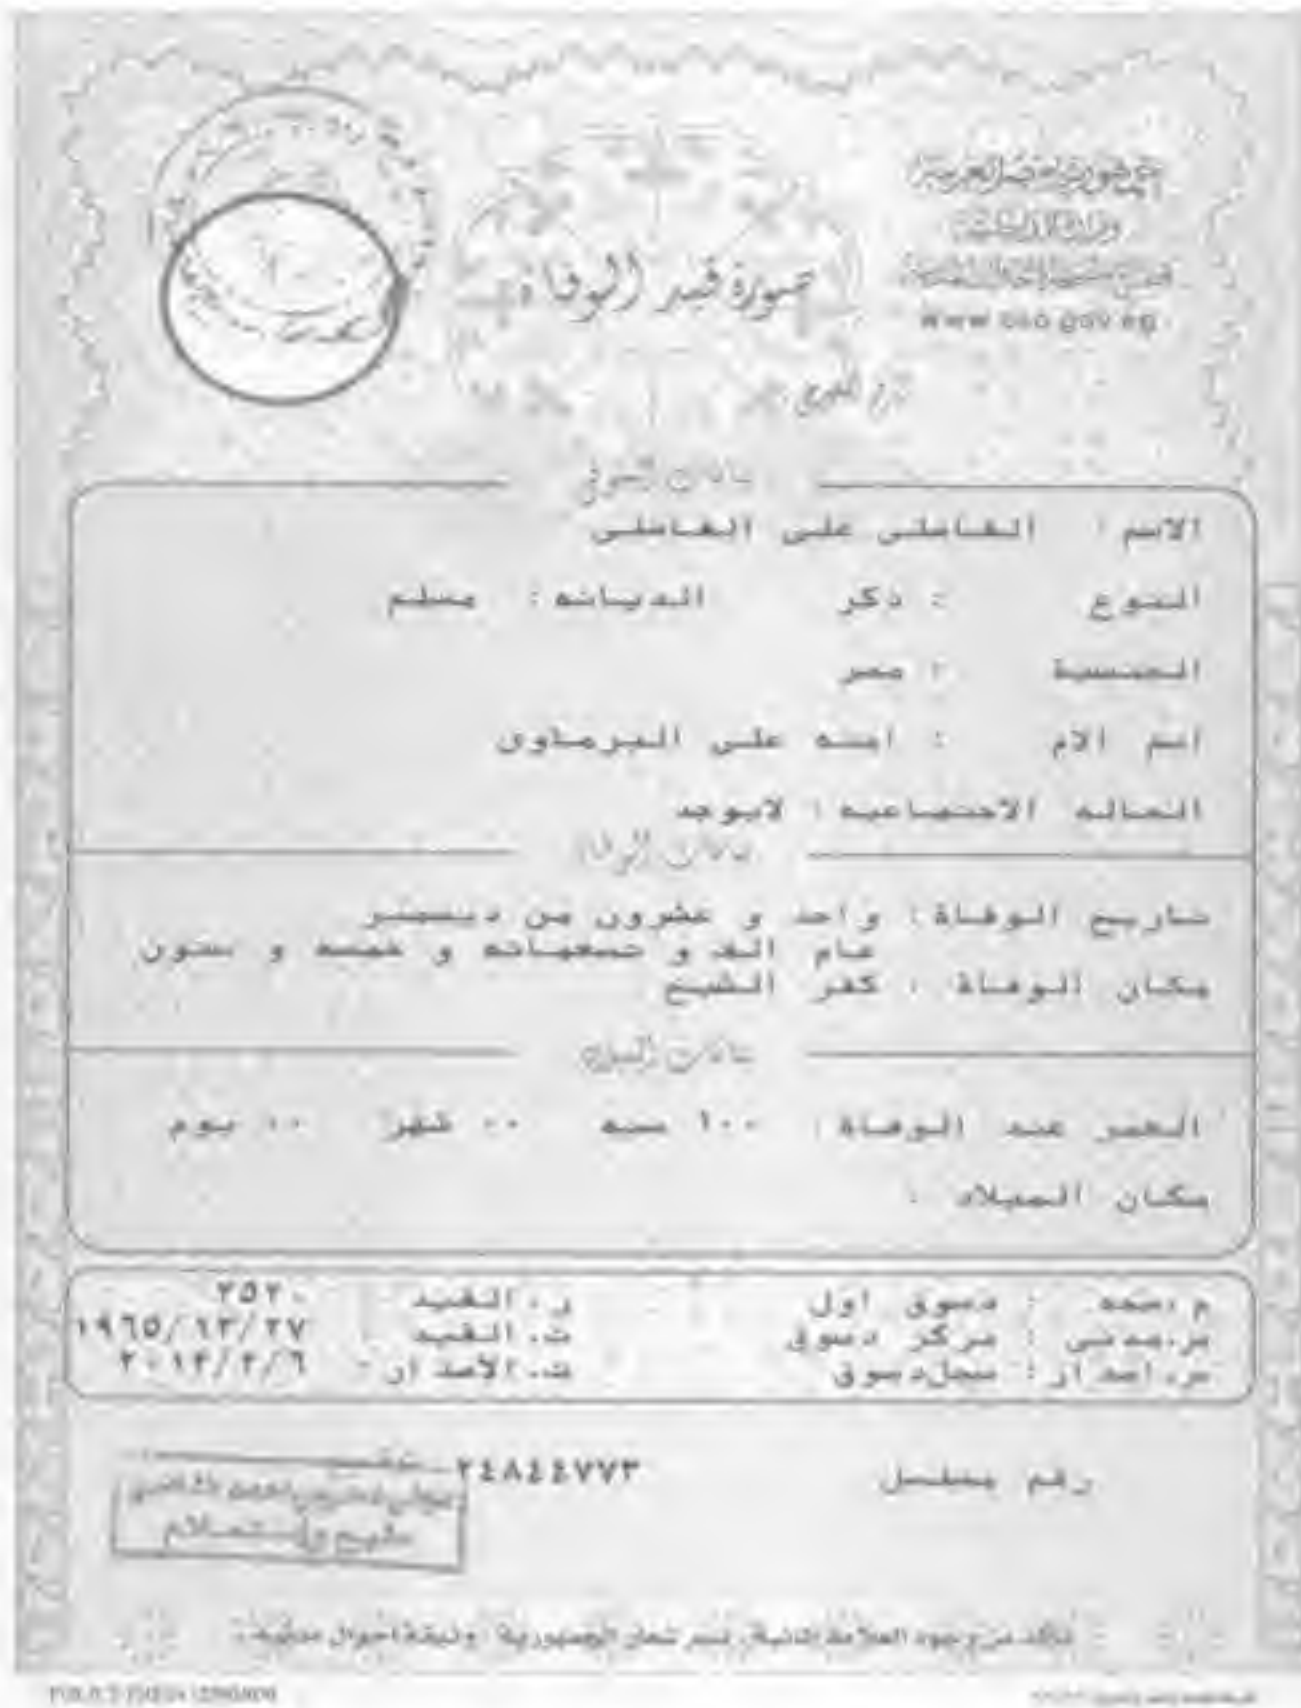 جمهورية مصر العربية
وزارة الداخلية
قطاع مصلحة الأحوال المدنية
www.cso.gov.eg
صورة قيد الوفاة
بيانات المتوفى
الاسم : الفاضلى على الفاضلى
النوع : ذكر الديانه : مسلم
الجنسية : مصر
اسم الام : امنه على البرماوى
الحاله الاجتماعيه : لايوجد
بيانات الوفاة
تاريخ الوفاة : واحد و عشرون من ديسمبر
عام الف و تسعمائه و خمسه و ستون
مكان الوفاة : كفر الشيخ
بيانات
العمر عند الوفاة : ١٠٠ سنه ٠٠ شهر ٠٠ يوم
مكان الميلاد :
م.صحه : دسوق اول ر.القيد : ٢٥٢٠
س.مدنى : مركز دسوق ت.القيد : ١٩٦٥/١٢/٢٧
س.اصدار : سجل دسوق ت.الاصدار : ٢٠١٢/٢/٦
رقم مسلسل ٢٤٨٤٤٧٧٣
تأكد من وجود العلامة المائية، نسر شعار الجمهورية وثيقة احوال مدنية